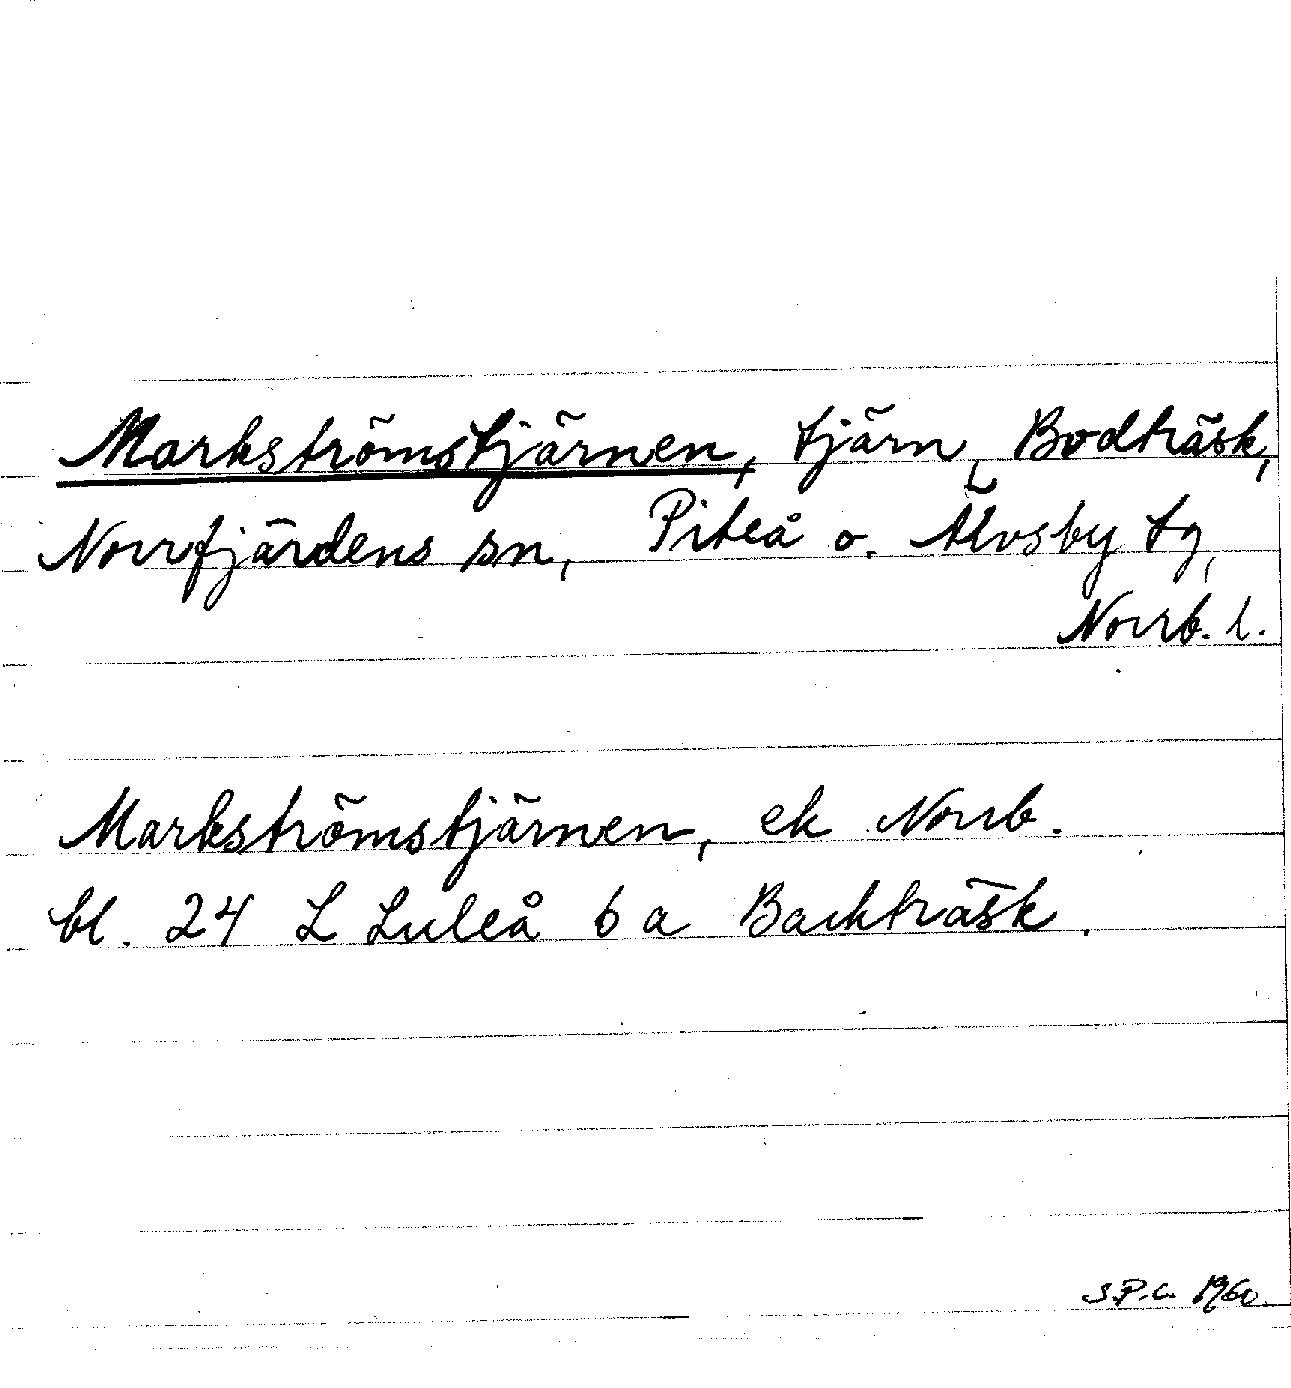 Markströmstjärnen, tjärn, Bodträsk,
Norrfjärdens sn, Piteå o. Älvsby tg,
Norrb. l.
Markströmstjärnen, ek Norrb.
bl. 24 L Luleå 6 a Backträsk.
S.P.C. 1960.